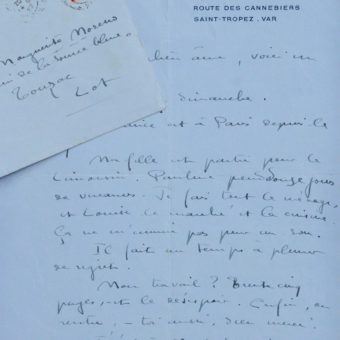 ROUTE DES CANNEBIERS
SAINT-TROPEZ . VAR
Marguerite Moreno
de la Source bleue
Touzac
Lot
âme, voici un
dimanche.
est à Paris depuis le
Ma fille est partie pour le
Limousin. Pauline pend douze jours
de vacances. Je fais tout le ménage,
et Louise le marché et la cuisine.
Ça ne m'ennuie pas pour un sou.
Il fait un temps à pleurer
de regrets.
Mon travail ? Trente cinq
pages, et le désespoir. Enfin, on
rentre, - toi aussi, dieu merci.